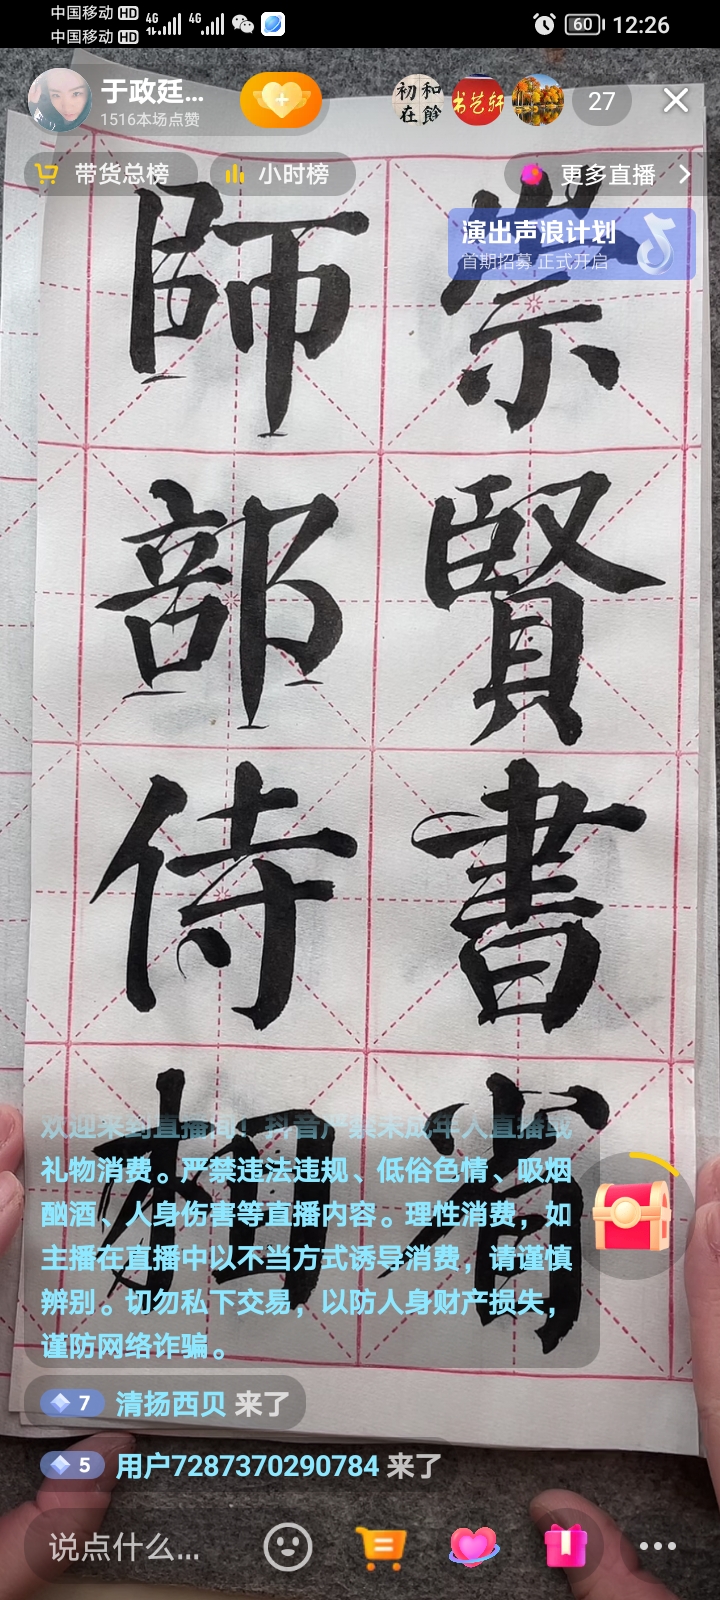 中国移动 HD 4G 4G 60 12:26
中国移动 HD
于政廷...
1516本场点赞
初和在餘
书艺轩
27
带货总榜
小时榜
更多直播
演出声浪计划
首期招募 正式开启
崇賢書省
師部侍相
欢迎来到直播间！抖音严禁未成年人直播或
礼物消费。严禁违法违规、低俗色情、吸烟
酗酒、人身伤害等直播内容。理性消费，如
主播在直播中以不当方式诱导消费，请谨慎
辨别。切勿私下交易，以防人身财产损失，
谨防网络诈骗。
7 清扬西贝 来了
5 用户7287370290784 来了
说点什么...